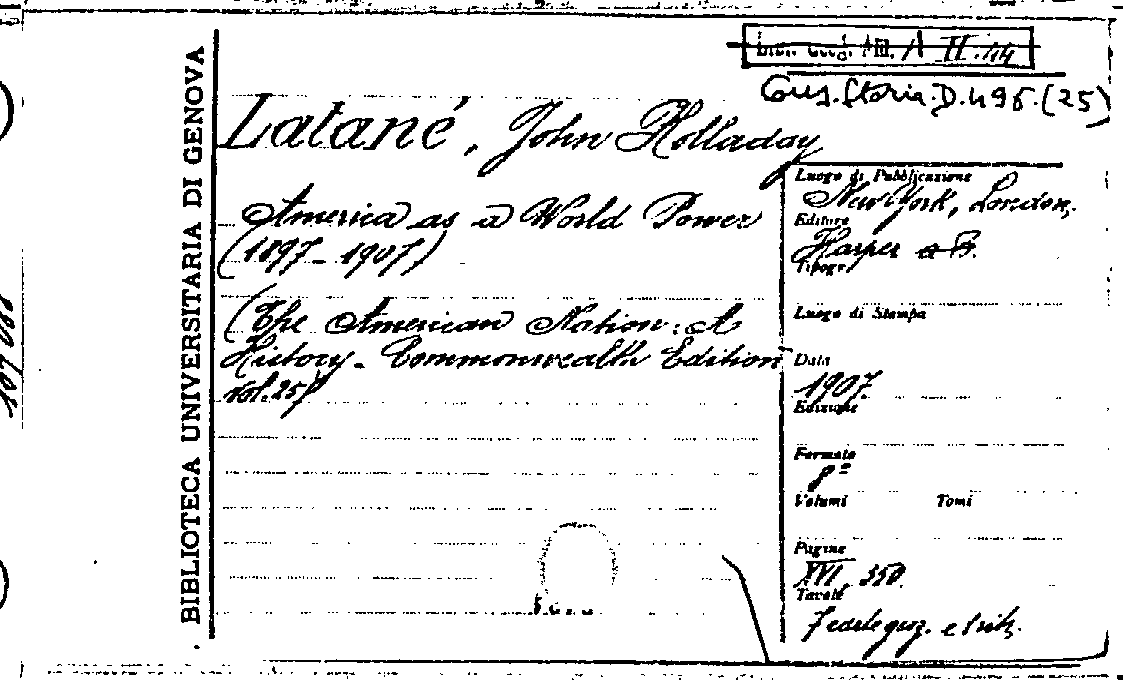 BIBLIOTECA UNIVERSITARIA DI GENOVA
A II.44
Cons. Storia. D. 496. (25)
Latané, John Holladay
America as a World Power
(1897-1907)
(The American Nation: A
History - Commonwealth Edition
Vol. 25)
Luogo di Pubblicazione
New York, London,
Editore
Harper a B.
Tipogr.
Luogo di Stampa
Data
1907.
Edizione
Formato
8º
Volumi Tomi
Pagine
XVI, 350
Tavole